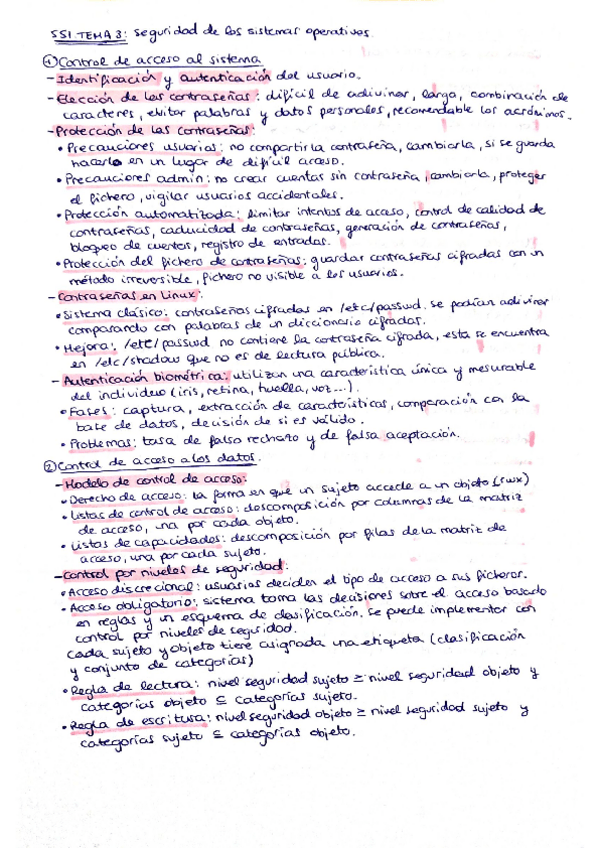 SSI TEMA 3: Seguridad de los sistemas operativos.
① Control de acceso al sistema
- Identificación y autenticación del usuario.
- Elección de las contraseñas: difícil de adivinar, larga, combinación de
caracteres, evitar palabras y datos personales, recomendable los acrónimos.
- Protección de las contraseñas:
• Precauciones usuarios: no compartir la contraseña, cambiarla, si se guarda
hacerlo en un lugar de difícil acceso.
• Precauciones admin: no crear cuentas sin contraseña, cambiarla, proteger
el fichero, vigilar usuarios accidentales.
• Protección automatizada: limitar intentos de acceso, control de calidad de
contraseñas, caducidad de contraseñas, generación de contraseñas,
bloqueo de cuentas, registro de entradas.
• Protección del fichero de contraseñas: guardar contraseñas cifradas con un
método irreversible, fichero no visible a los usuarios.
- Contraseñas en Linux:
• Sistema clásico: contraseñas cifradas en /etc/passwd. se podían adivinar
comparando con palabras de un diccionario cifradas.
• Mejora: /etc/passwd no contiene la contraseña cifrada, esta se encuentra
en /etc/shadow que no es de lectura pública.
- Autenticación biométrica: utilizan una característica única y mesurable
del individuo (iris, retina, huella, voz...).
• Fases: captura, extracción de características, comparación con la
base de datos, decisión de si es válido.
• Problemas: tasa de falso rechazo y de falsa aceptación.
② Control de acceso a los datos.
- Modelo de control de acceso:
• Derecho de acceso: la forma en que un sujeto accede a un objeto (rwx)
• Listas de control de acceso: descomposición por columnas de la matriz
de acceso, una por cada objeto.
• Listas de capacidades: descomposición por filas de la matriz de
acceso, una por cada sujeto.
- Control por niveles de seguridad:
• Acceso discrecional: usuarios deciden el tipo de acceso a sus ficheros.
• Acceso obligatorio: sistema toma las decisiones sobre el acceso basado
en reglas y un esquema de clasificación. se puede implementar con
control por niveles de seguridad.
Cada sujeto y objeto tiene asignada una etiqueta (clasificación
y conjunto de categorías)
• Regla de lectura: nivel seguridad sujeto ≥ nivel seguridad objeto y
categorías objeto ⊆ categorías sujeto.
• Regla de escritura: nivel seguridad objeto ≥ nivel seguridad sujeto y
categorías sujeto ⊆ categorías objeto.